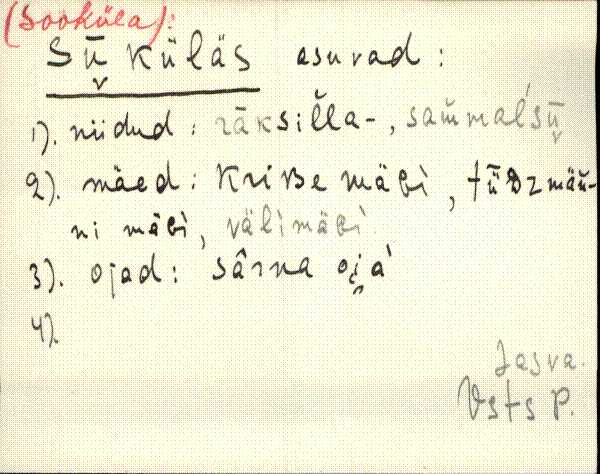 (Sooküla):
Sū̬ küläs asuvad :
1). niidud : rāksil̆l̆a-, sam̆mal'sū̬
2). mäed : Kriʙe mäGi, tǖDzmäŭ-
ni mäGi, välimäGi
3). ojad : sârna oi̯a'
4).
Jasva.
Vsts P.